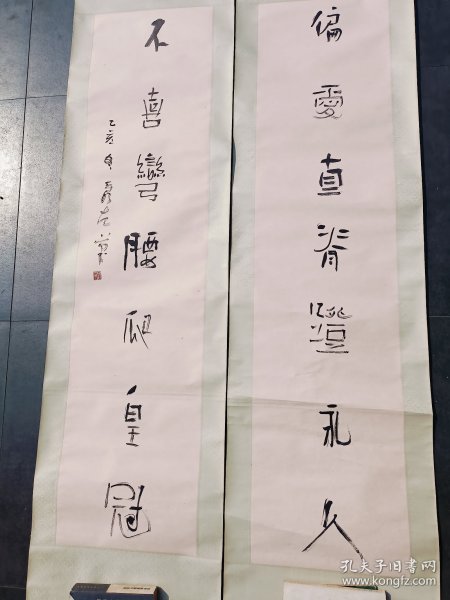 偏愛直脊永久
不喜彎腰爬皇冠
乙亥年
孔夫子旧书网
www.kongfz.com